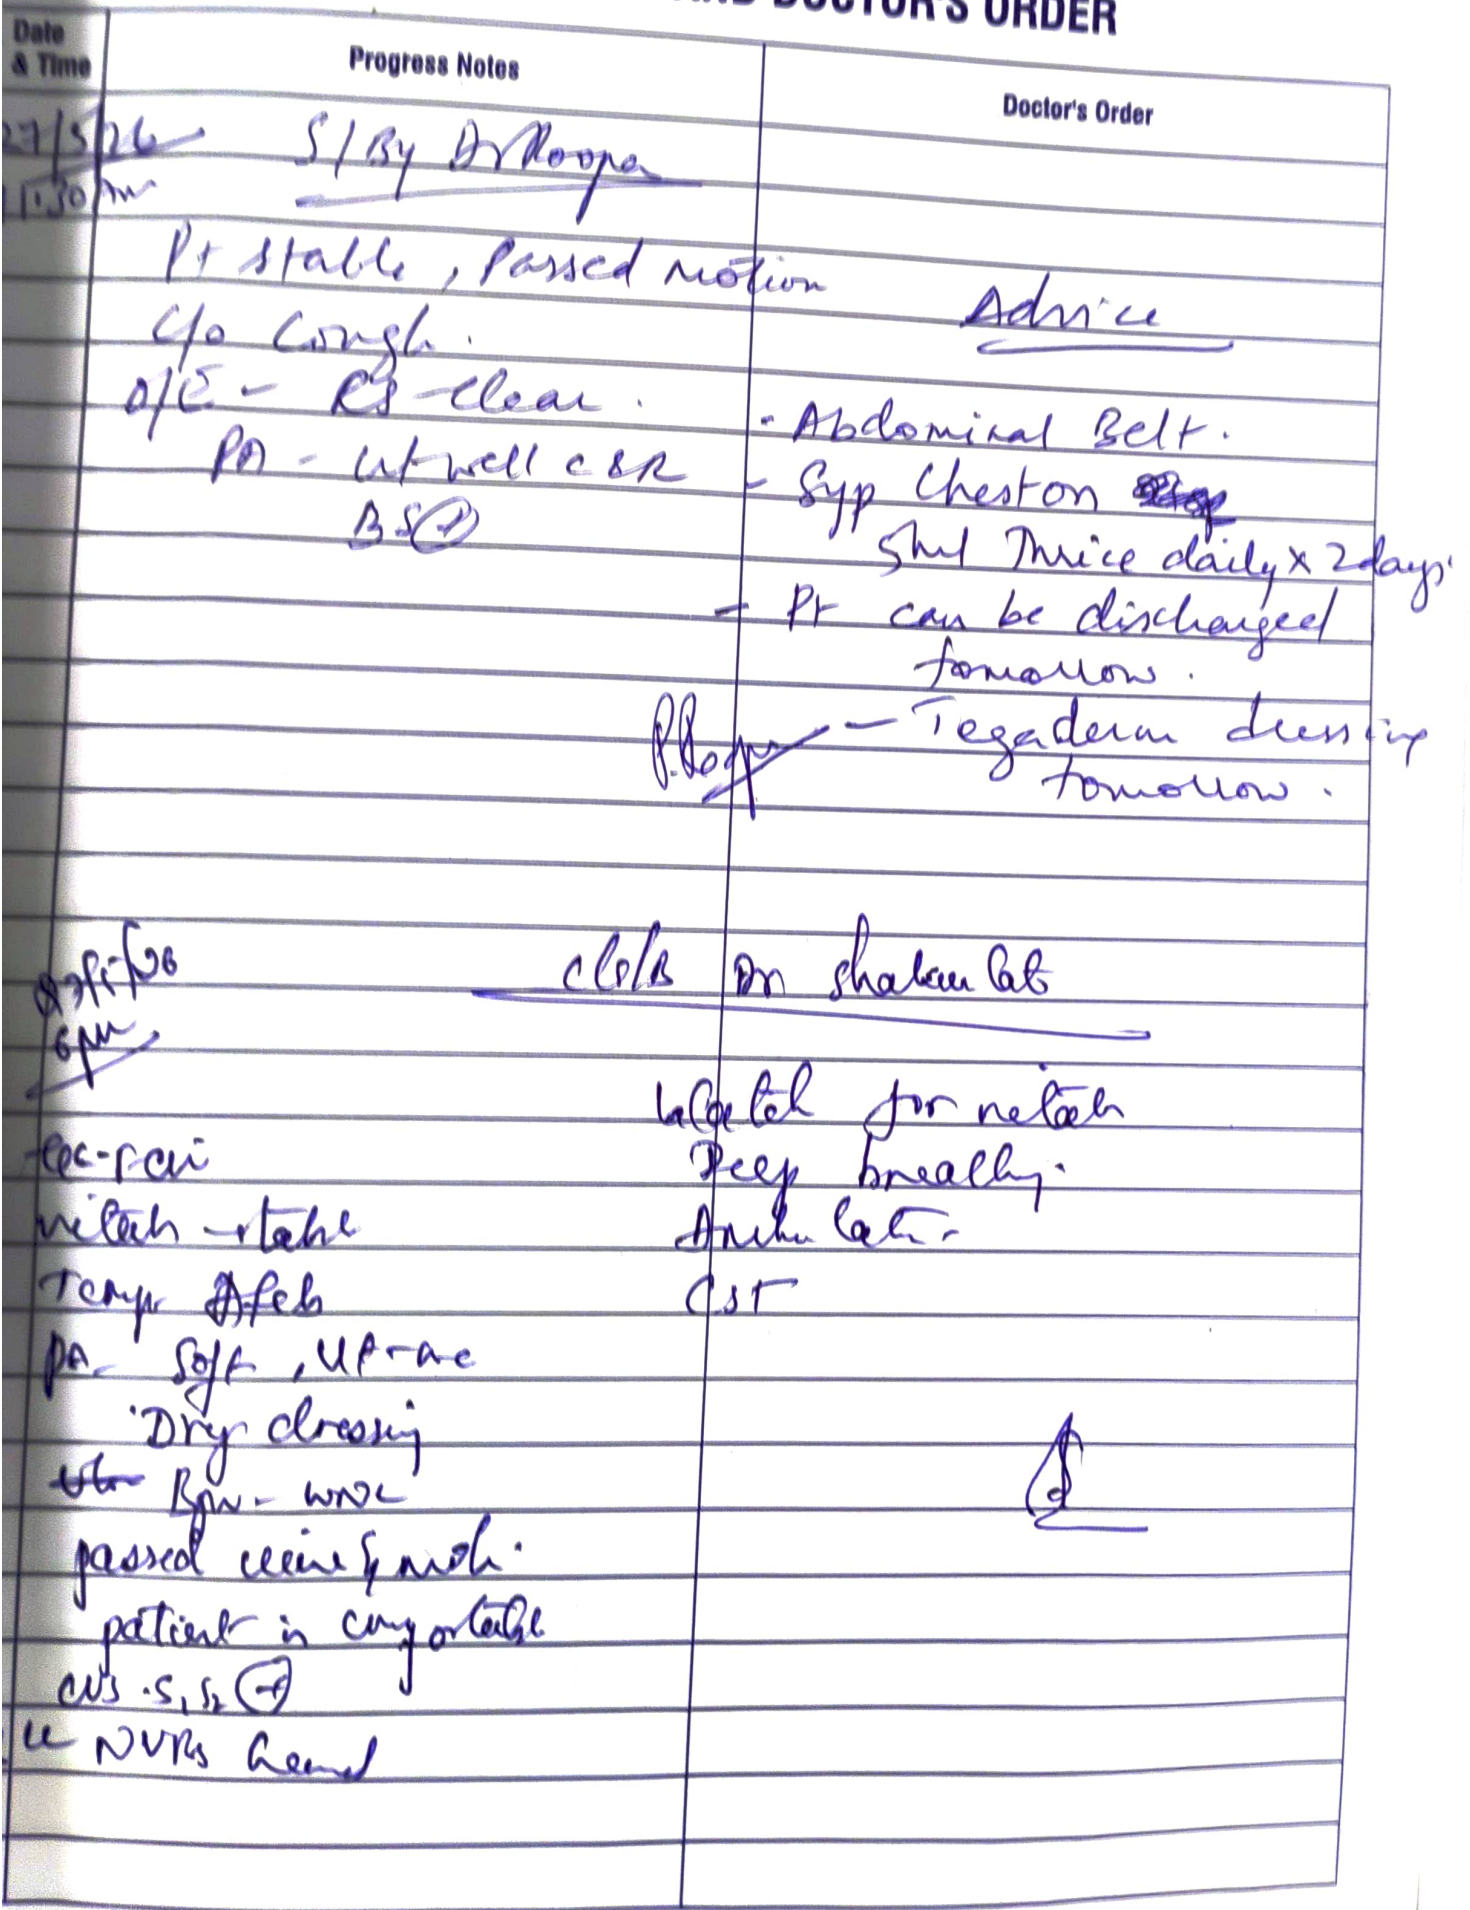 AND DOCTOR'S ORDER
Date & Time
Progress Notes
Doctor's Order
27/5/26
11.30 Am
S/By Dr Roopa
Pt stable, Passed motion
C/o Cough.
O/E - RS - clear.
PA - Ut well c & R
BS (+)
Advice
- Abdominal Belt.
- Syp Cheston
5ml Thrice daily x 2 days.
- Pt can be discharged
tomorrow.
- Tegaderm dressing
tomorrow.
P. Roopa
27/5/26
6 pm
C/S/B Dr Shakuntala
GC - Fair
vitals - stable
Temp Afeb
PA - Soft, Ut - wc
Dry dressing
BPV - WNL
passed urine & motion.
patient is comfortable
CVS - S1 S2 (+)
NVBS heard
Watch for vitals
Deep breathing.
Ambulation
CST